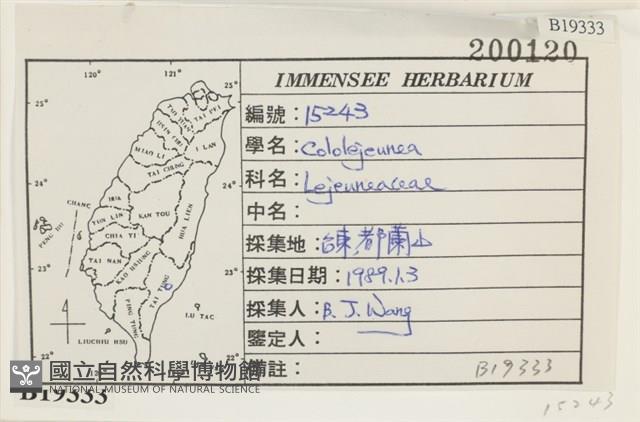 B19333
200120
IMMENSEE HERBARIUM
編號：15243
學名：Cololejeunea
科名：Lejeuneaceae
中名：
採集地：台東,都蘭山
採集日期：1989.1.3
採集人：B. J. Wang
鑒定人：
備註：
B19333
15243
120°
121°
25°
25°
24°
24°
23°
23°
22°
22°
TAI PEI
I LAN
MIAO LI
TAI CHUNG
CHANG
HUA
YUN LIN
NAN TOU
HUA LIEN
CHIA YI
PENG HU
TAI NAN
KAO HSIUNG
TAI TUNG
PING TUNG
LU TAO
LIUCHIU HSU
120°
國立自然科學博物館
NATIONAL MUSEUM OF NATURAL SCIENCE
B19333